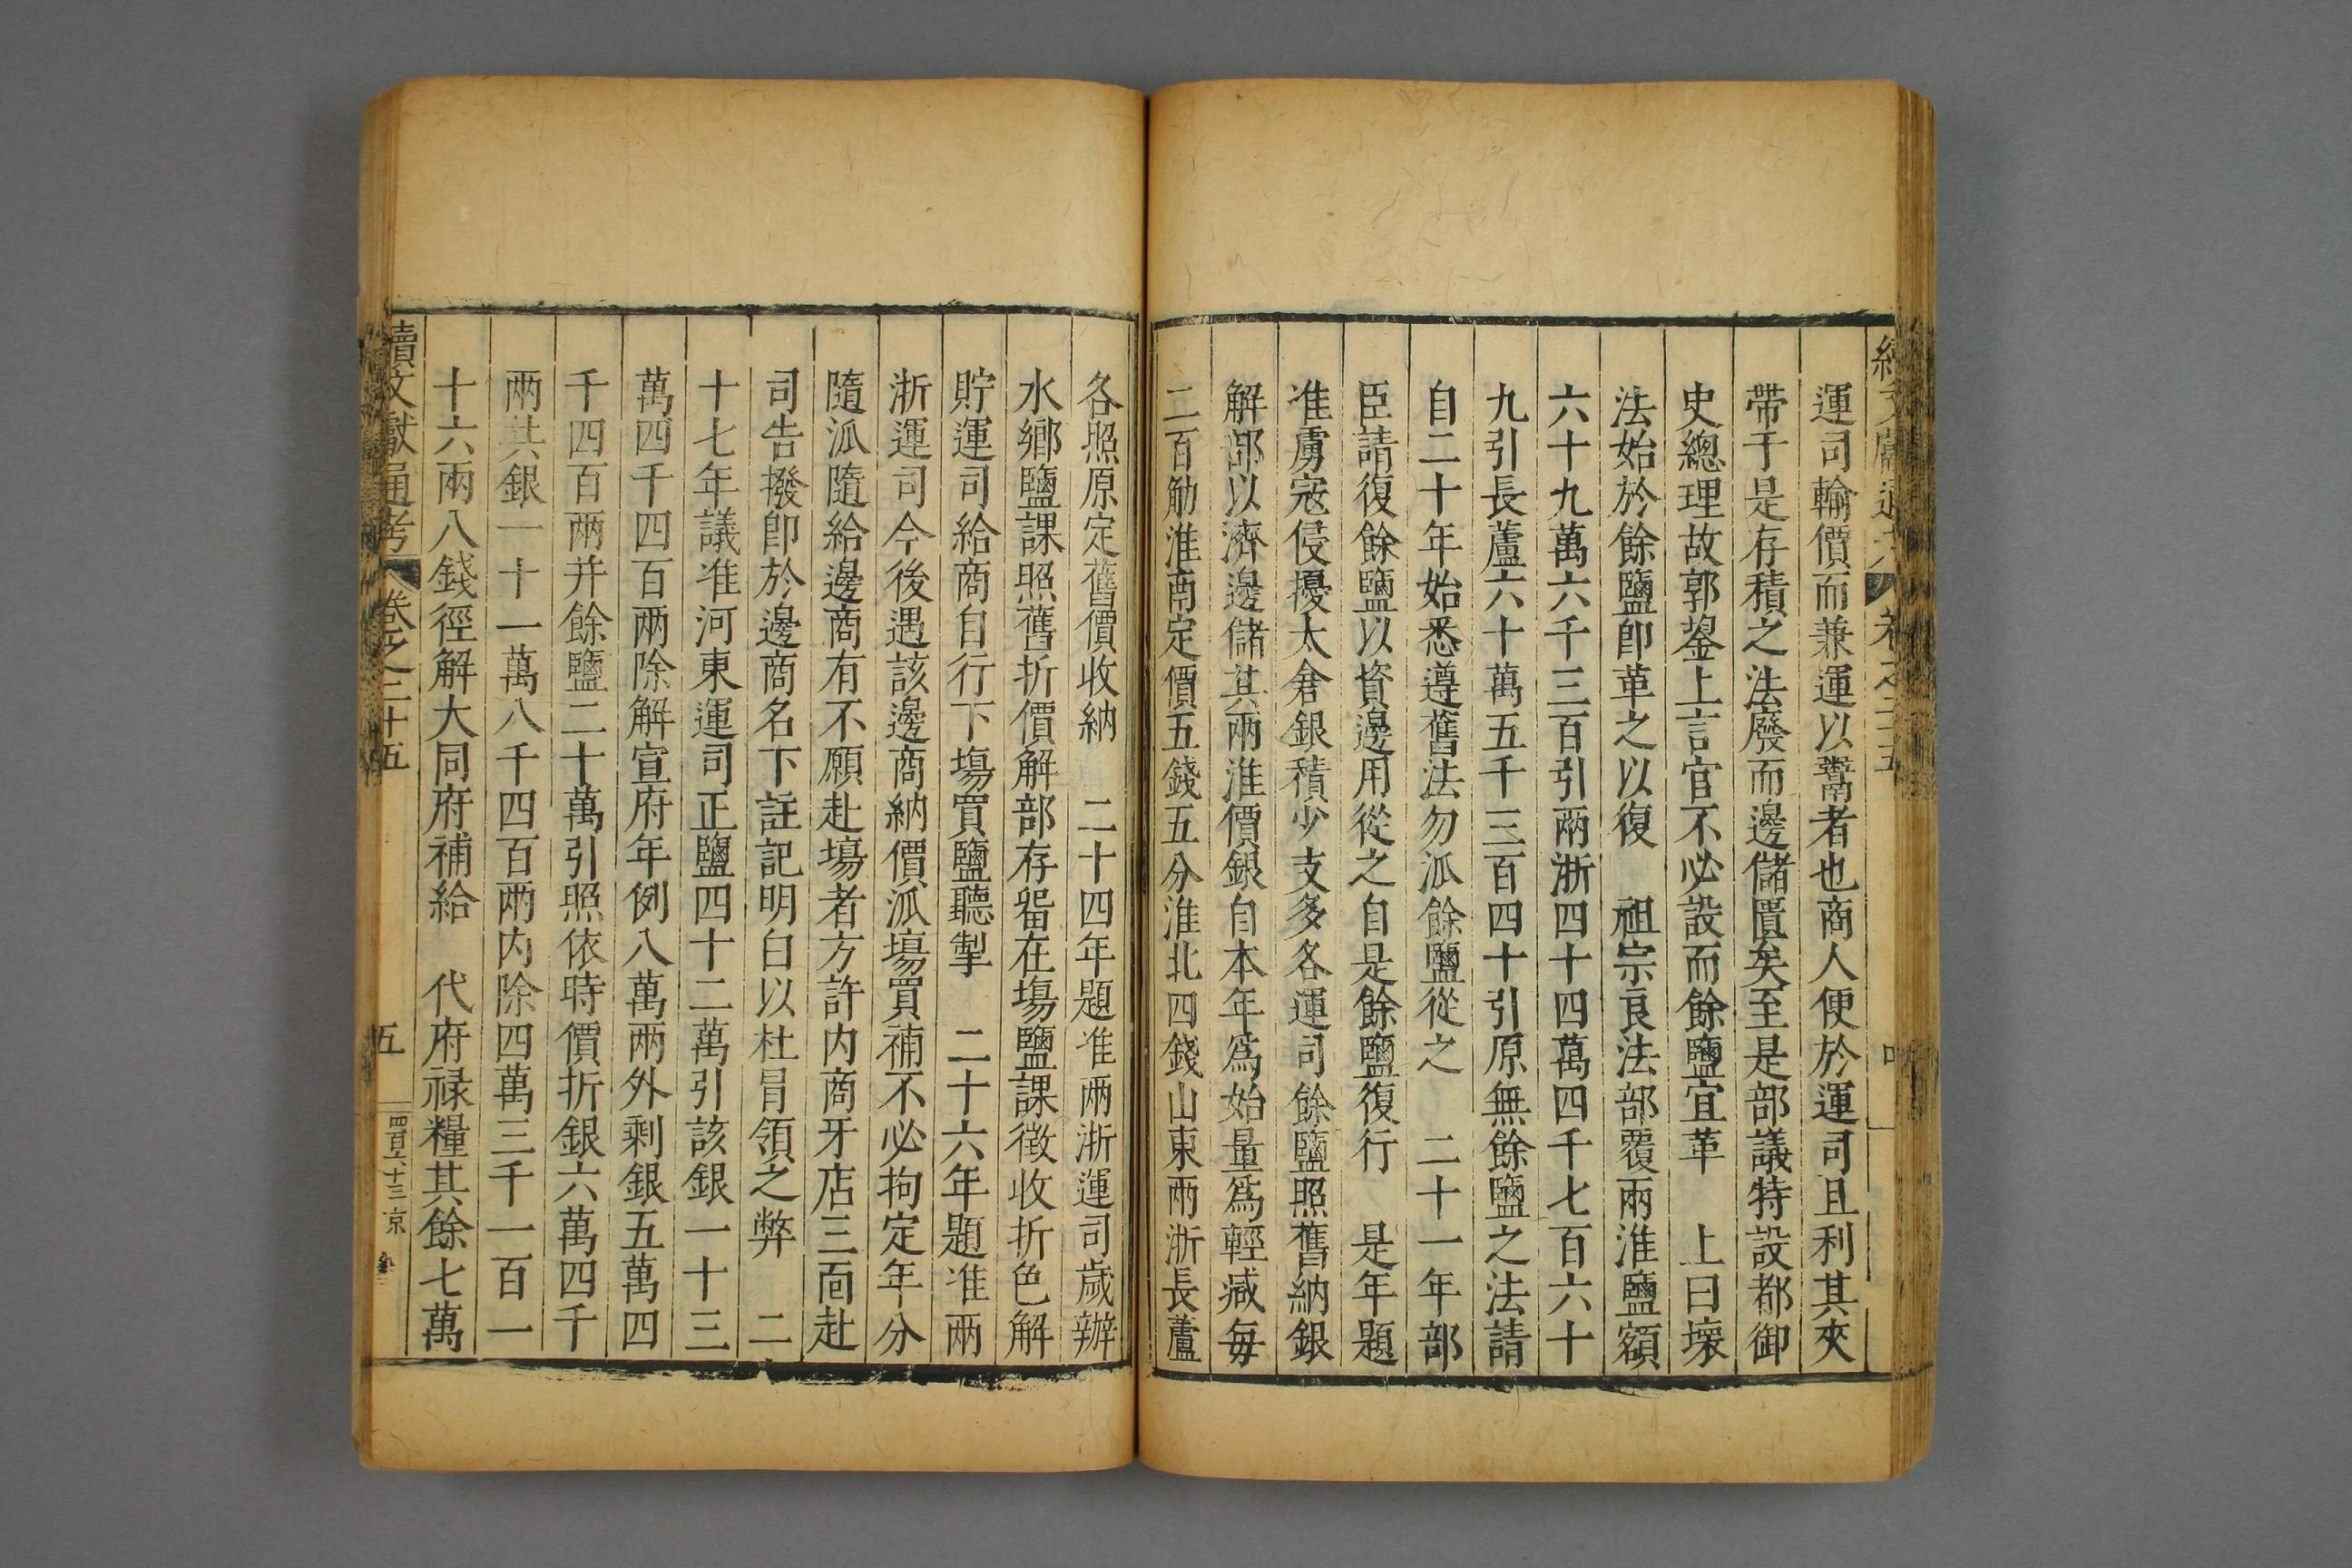 運司輸價而兼運以鬻者也商人便於運司且利其夾
帶于是存積之法廢而邊儲匱矣至是部議特設都御
史總理故郭鋆上言官不必設而餘鹽宜革　上曰壞
法始於餘鹽卽革之以復　祖宗良法部覆兩淮鹽額
六十九萬六千三百引兩浙四十四萬四千七百六十
九引長蘆六十萬五千三百四十引原無餘鹽之法請
自二十年始悉遵舊法勿派餘鹽從之　二十一年部
臣請復餘鹽以資邊用從之自是餘鹽復行　是年題
准虜寇侵擾太倉銀積少支多各運司餘鹽照舊納銀
解部以濟邊儲其兩淮價銀自本年爲始量爲輕減每
二百觔淮南定價五錢五分淮北四錢山東兩浙長蘆
各照原定舊價收納　二十四年題准兩浙運司歲辦
水鄉鹽課照舊折價解部存留在塲鹽課徵收折色解
貯運司給商自行下塲買鹽聽掣　二十六年題准兩
浙運司今後遇該邊商納價派塲買補不必拘定年分
隨派隨給邊商有不願赴塲者方許内商牙店三面赴
司告撥卽於邊商名下註記明白以杜冒領之弊　二
十七年議准河東運司正鹽四十二萬引該銀一十三
萬四千四百兩除解宣府年例八萬兩外剩銀五萬四
千四百兩并餘鹽二十萬引照依時價折銀六萬四千
兩共銀一十一萬八千四百兩内除四萬三千一百一
十六兩八錢徑解大同府補給　代府祿糧其餘七萬
續文獻通考　卷之二十五　五　四百六十三　京